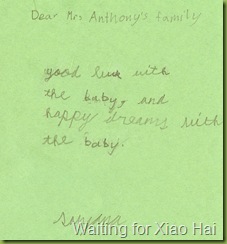 Dear Mrs Anthony's family
good luck with
the baby, and
happy dreams with
the baby.
Waiting for Xiao Hai